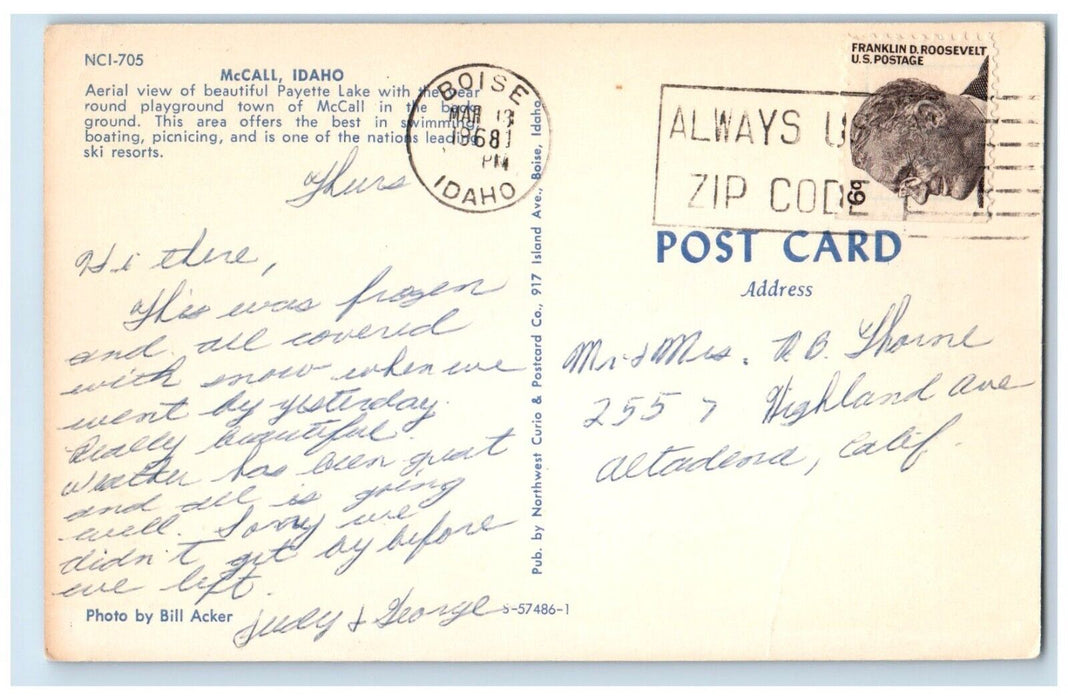 NCI-705
McCALL, IDAHO
Aerial view of beautiful Payette Lake with the year
round playground town of McCall in the back
ground. This area offers the best in swimming,
boating, picnicing, and is one of the nations leading
ski resorts.
Thurs
Hi there,
This was frozen
and all covered
with snow when we
went by yesterday.
Really beautiful.
Weather has been great
and all is going
well. Sorry we
didn't get by before
we left.
Judy & George
Photo by Bill Acker
S-57486-1
Pub. by Northwest Curio & Postcard Co., 917 Island Ave., Boise, Idaho
BOISE
MAR
1968
PM
IDAHO
ALWAYS U
ZIP CODE
FRANKLIN D. ROOSEVELT
U.S. POSTAGE
6¢
POST CARD
Address
Mr & Mrs. R B. Thorne
2557 Highland Ave
Altadena, Calif.